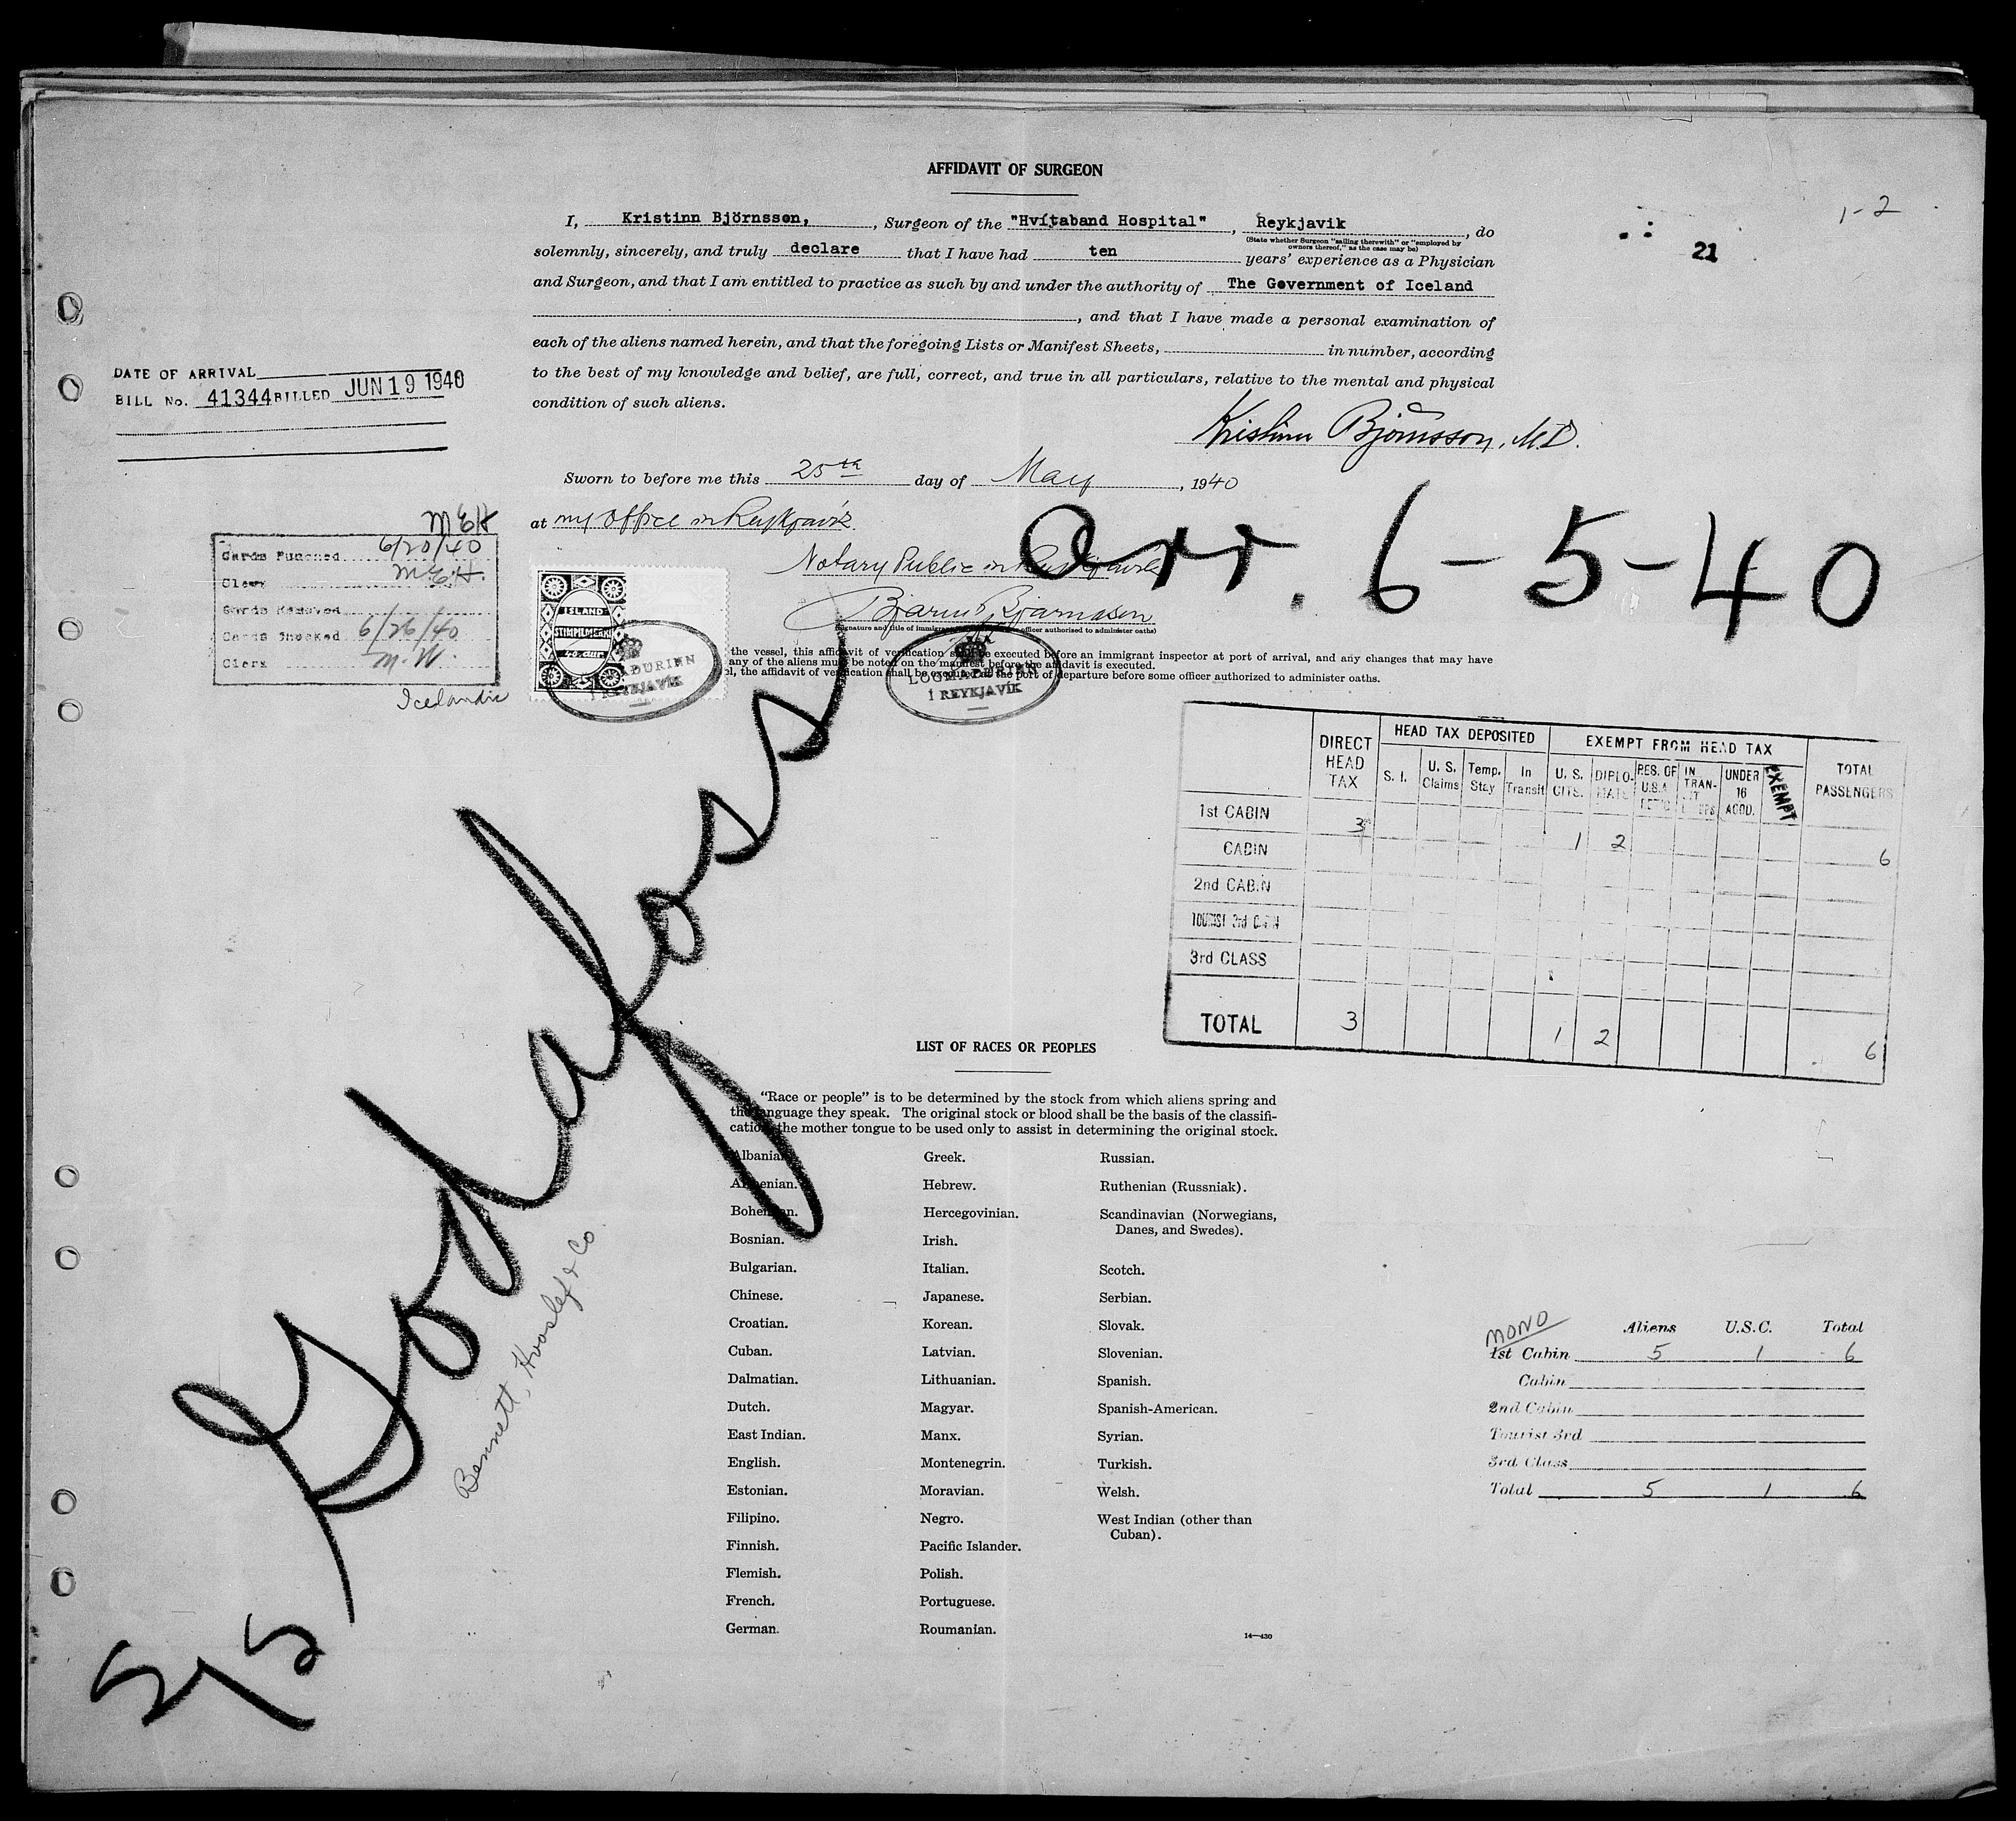 AFFIDAVIT OF SURGEON
1-2
21
I, Kristinn Björnsson, , Surgeon of the "Hvítaband Hospital" , Reykjavik , do
(State whether Surgeon "sailing therewith" or "employed by
owners thereof," as the case may be)
solemnly, sincerely, and truly declare that I have had ten years' experience as a Physician
and Surgeon, and that I am entitled to practice as such by and under the authority of The Government of Iceland
, and that I have made a personal examination of
each of the aliens named herein, and that the foregoing Lists or Manifest Sheets, in number, according
to the best of my knowledge and belief, are full, correct, and true in all particulars, relative to the mental and physical
condition of such aliens.
Kristinn Björnsson, M.D.
DATE OF ARRIVAL
BILL No. 41344 BILLED JUN 19 1940
Sworn to before me this 25th day of May , 1940
at my office in Reykjavík
Notary Public in Reykjavík
Bjarni Bjarnason
(Signature and title of immigrant officer authorized to administer oaths)
arr. 6-5-40
MEH
Cards Punched 6/20/40
Clerk M.E.H.
Cards Removed
Cards Checked 6/26/40
Clerk M.W.
Icelandic
ISLAND
STIMPILMERKI
aur.
REYKJAVÍK
Í REYKJAVÍK
the vessel, this affidavit of verification shall be executed before an immigrant inspector at port of arrival, and any changes that may have
any of the aliens must be noted on the manifest before the affidavit is executed.
the affidavit of verification shall be executed at the port of departure before some officer authorized to administer oaths.
DIRECT HEAD TAX
HEAD TAX DEPOSITED
EXEMPT FROM HEAD TAX
TOTAL PASSENGERS
S. I.
U. S. Claims
Temp. Stay
In Transit
U. S. CITS.
DIPLO-MATS
RES. OF U.S.A.
IN TRAN-
UNDER 16 ACCD.
EXEMPT
1st CABIN 3
CABIN 1 2 6
2nd CABIN
TOURIST 3rd CABIN
3rd CLASS
TOTAL 3 1 2 6
S/S Godafoss
Bennett, Hvoslef & Co.
LIST OF RACES OR PEOPLES
"Race or people" is to be determined by the stock from which aliens spring and
the language they speak. The original stock or blood shall be the basis of the classifi-
cation, the mother tongue to be used only to assist in determining the original stock.
Albanian.
Armenian.
Bohemian.
Bosnian.
Bulgarian.
Chinese.
Croatian.
Cuban.
Dalmatian.
Dutch.
East Indian.
English.
Estonian.
Filipino.
Finnish.
Flemish.
French.
German.
Greek.
Hebrew.
Hercegovinian.
Irish.
Italian.
Japanese.
Korean.
Latvian.
Lithuanian.
Magyar.
Manx.
Montenegrin.
Moravian.
Negro.
Pacific Islander.
Polish.
Portuguese.
Roumanian.
Russian.
Ruthenian (Russniak).
Scandinavian (Norwegians,
Danes, and Swedes).
Scotch.
Serbian.
Slovak.
Slovenian.
Spanish.
Spanish-American.
Syrian.
Turkish.
Welsh.
West Indian (other than
Cuban).
14—430
MONO
Aliens U.S.C. Total
1st Cabin 5 1 6
Cabin
2nd Cabin
Tourist 3rd
3rd Class
Total 5 1 6